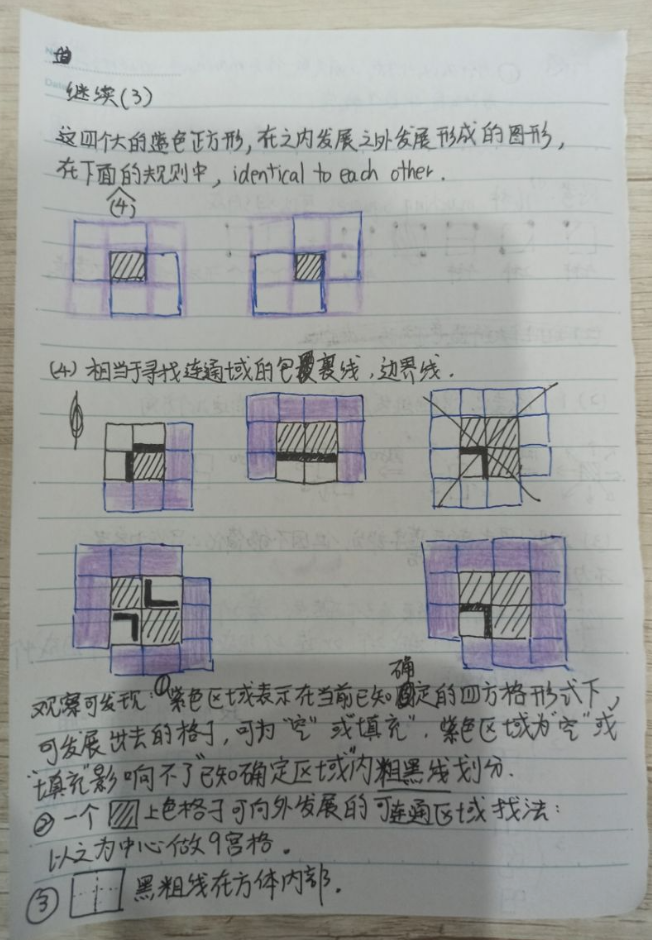 继续(3)
这四个大的蓝色正方形,在之内发展之外发展形成的图形,
在下面的规则中, identical to each other.
(4)
(4) 相当于寻找连通域的包裹线,边界线.
观察可发现:①紫色区域表示在当前已知确定的四方格形式下,
可发展出去的格子,可为“空”或“填充”. 紫色区域为“空”或
“填充”影响不了“已知确定区域”内粗黑线划分.
② 一个 上色格子可向外发展的可连通区域找法:
以之为中心做9宫格.
③ 黑粗线在方体内部.